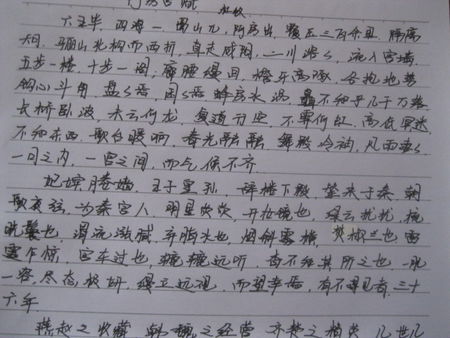 阿房宫赋 杜牧
六王毕 四海一 蜀山兀,阿房出,覆压三百余里,隔离
天日.骊山北构而西折,直走咸阳,二川溶々,流入宫墙,
五步一楼,十步一阁;廊腰缦回,檐牙高啄,各抱地势
钩心斗角,盘々焉,囷々焉 蜂房水涡,矗不知乎几千万落
长桥卧波,未云何龙,复道行空,不霁何虹,高低冥迷
不知东西.歌台暖响,春光融融,舞殿冷袖,风雨凄々
一日之内,一宫之间,而气候不齐.
妃嫔媵嫱,王子皇孙,辞楼下殿,辇来于秦,朝
歌夜弦,为秦宫人,明星荧荧,开妆镜也,绿云扰扰,梳
晓鬟也,渭流涨腻,弃脂水也,烟斜雾横,焚椒兰也,雷
霆乍惊,宫车过也,辘辘远听,杳不知其所之也,一肌
一容,尽态极妍,缦立远视,而望幸焉,有不得见者,三十
六年
燕赵之收藏 韩魏之经营 齐楚之精英 几世几